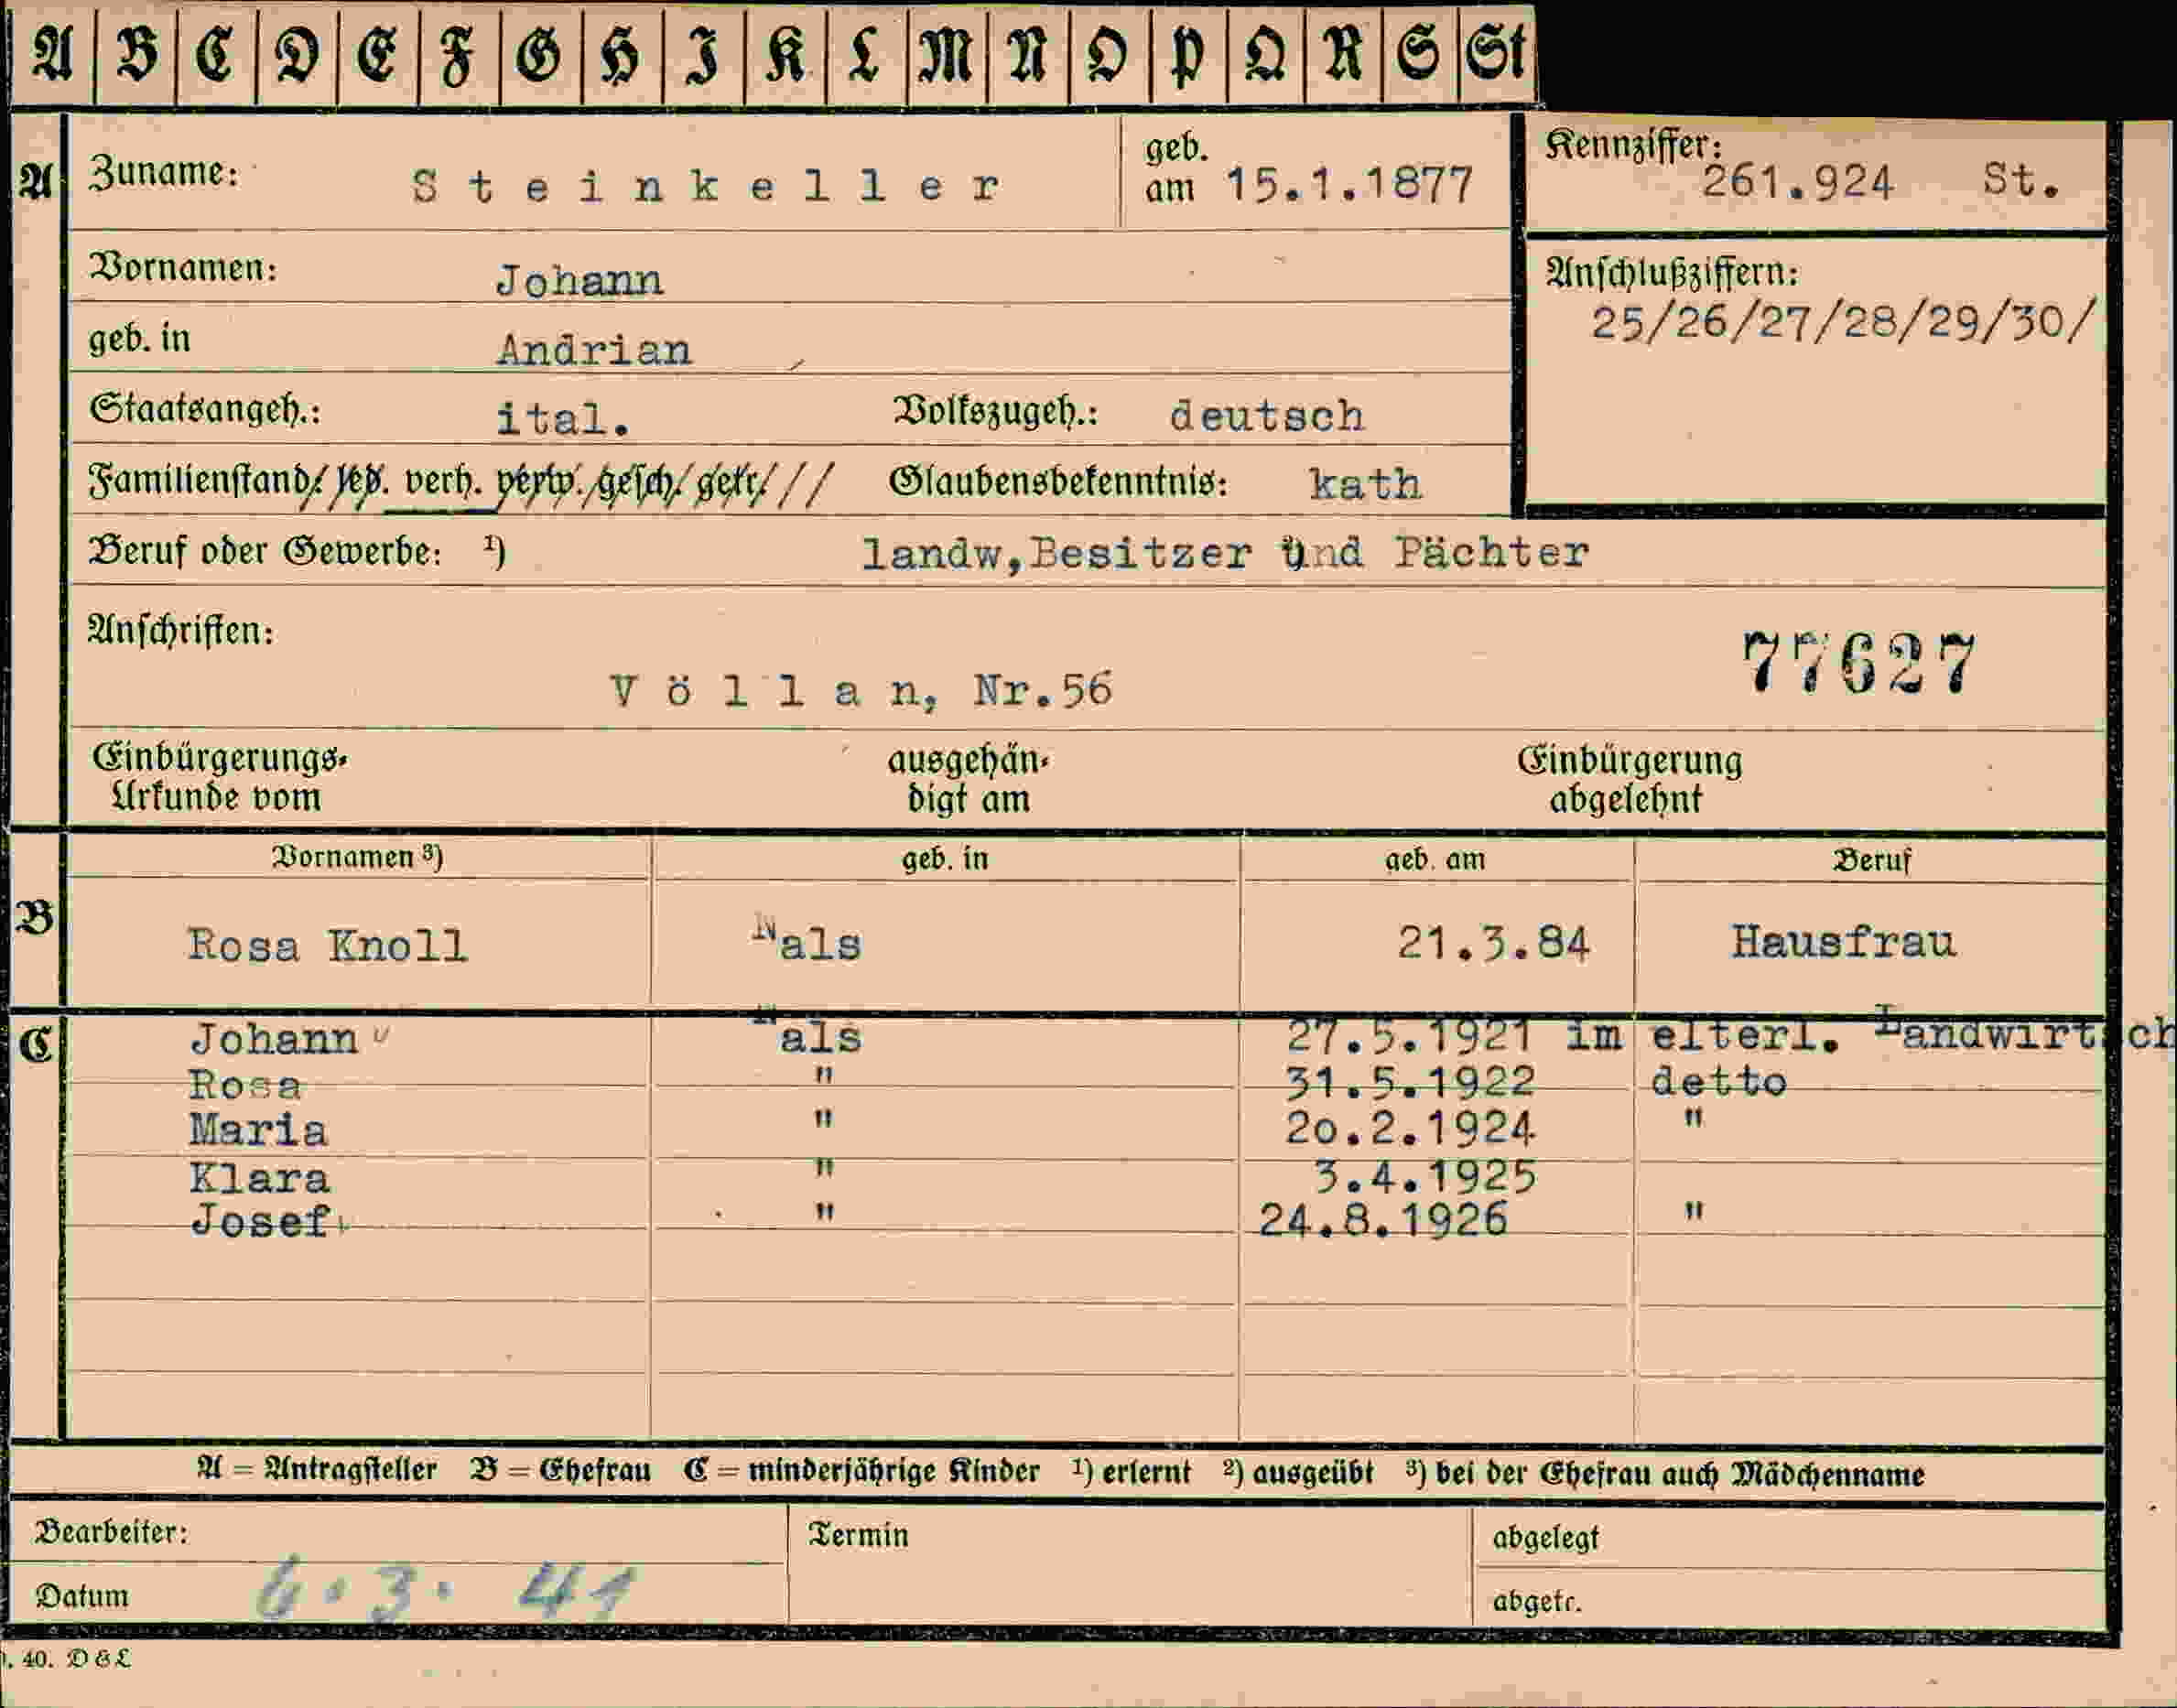 A B C D E F G H I K L M N O P Q R S St
A Zuname: Steinkeller geb. am 15.1.1877
Kennziffer: 261.924 St.
Vornamen: Johann
Anschlußziffern: 25/26/27/28/29/30/
geb. in Andrian
Staatsangeh.: ital. Volkszugeh.: deutsch
Familienstand: led. verh. verw. gesch. getr. Glaubensbekenntnis: kath
Beruf oder Gewerbe: ¹) landw,Besitzer und Pächter
Anschriften:
Völlan, Nr.56
77627
Einbürgerungs-Urkunde vom ausgehändigt am Einbürgerung abgelehnt
Vornamen ³) geb. in geb. am Beruf
B Rosa Knoll Nals 21.3.84 Hausfrau
C Johann Nals 27.5.1921 im elterl. Landwirtsch
Rosa " 31.5.1922 detto
Maria " 20.2.1924 "
Klara " 3.4.1925
Josef " 24.8.1926 "
A = Antragsteller B = Ehefrau C = minderjährige Kinder ¹) erlernt ²) ausgeübt ³) bei der Ehefrau auch Mädchenname
Bearbeiter: Termin abgelegt
Datum 6.3.41 abgetr.
40. D & L